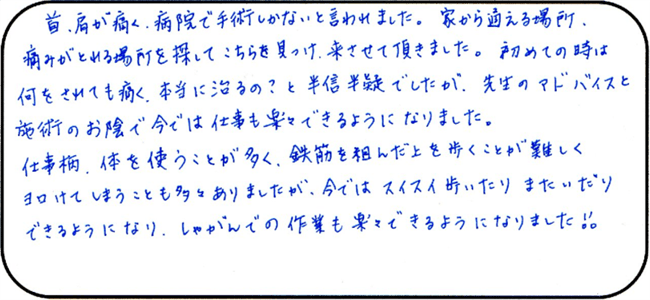 首、肩が痛く、病院で手術しかないと言われました。家から通える場所、
痛みがとれる場所を探してこちらを見つけ、来させて頂きました。初めての時は
何をされても痛く、本当に治るの?と半信半疑でしたが、先生のアドバイスと
施術のお陰で今では仕事も楽々できるようになりました。
仕事柄、体を使うことが多く、鉄筋を組んだ上を歩くことが難しく
ヨロけてしまうことも多々ありましたが、今ではスイスイ歩いたりまたいだり
できるようになり、しゃがんでの作業も楽々できるようになりました!!